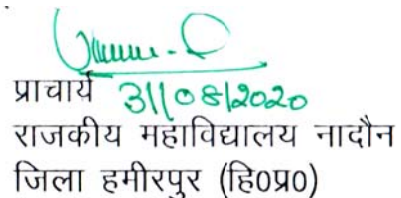 प्राचार्य 31/08/2020
राजकीय महाविद्यालय नादौन
जिला हमीरपुर (हि0प्र0)